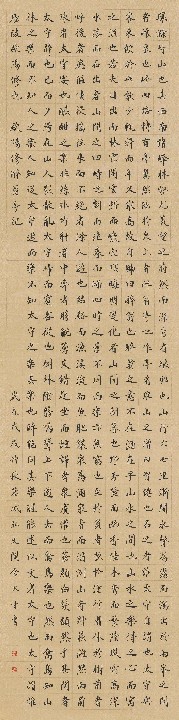 環滁皆山也其西南諸峰林壑尤美望之蔚然而深秀者琅琊也山行六七里漸聞水聲潺潺而瀉出於兩峰之間
者釀泉也峰回路轉有亭翼然臨於泉上者醉翁亭也作亭者誰山之僧智仙也名之者誰太守自謂也太守與
客來飲於此飲少輒醉而年又最高故自號曰醉翁也醉翁之意不在酒在乎山水之間也山水之樂得之心而寓
之酒也若夫日出而林霏開雲歸而巖穴暝晦明變化者山間之朝暮也野芳發而幽香佳木秀而繁陰風霜高潔
水落而石出者山間之四時也朝而往暮而歸四時之景不同而樂亦無窮也至於負者歌於途行者休於樹前者
呼後者應傴僂提攜往來而不絕者滁人遊也臨溪而漁溪深而魚肥釀泉為酒泉香而酒洌山餚野蔌雜然而前
陳者太守宴也宴酣之樂非絲非竹射者中弈者勝觥籌交錯起坐而諠譁者眾賓懽也蒼顏白髮頹然乎其間者
太守醉也已而夕陽在山人影散亂太守歸而賓客從也樹林陰翳鳴聲上下遊人去而禽鳥樂也然而禽鳥知山
林之樂而不知人之樂人知從太守遊而樂而不知太守之樂其樂也醉能同其樂醒能述以文者太守也太守謂誰
廬陵歐陽修也 歐陽修醉翁亭記 歲在戊戌